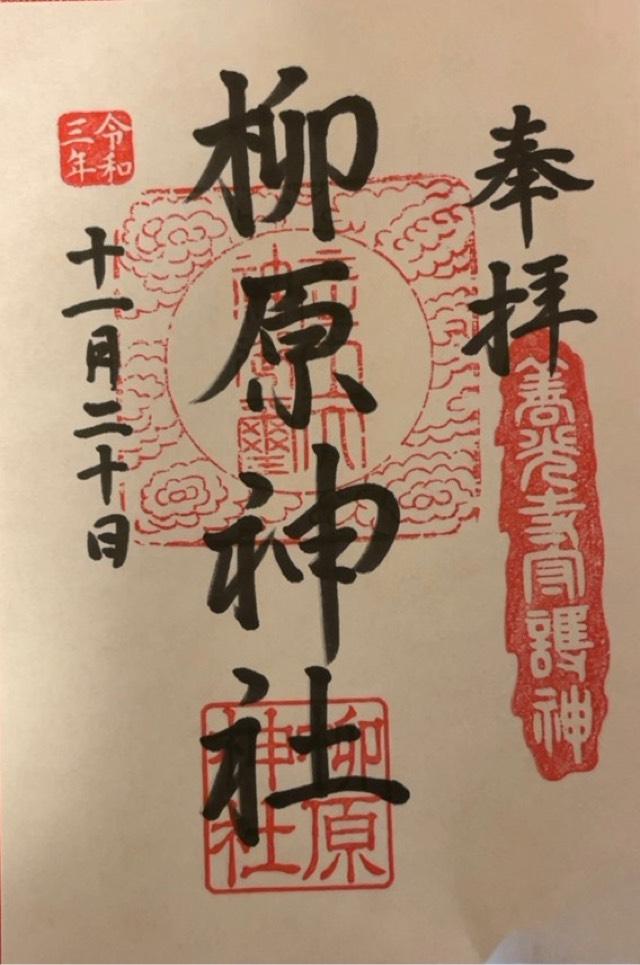 奉拝
善光寺守護神
柳原神社
柳原
神社
令和
三年
十一月二十日